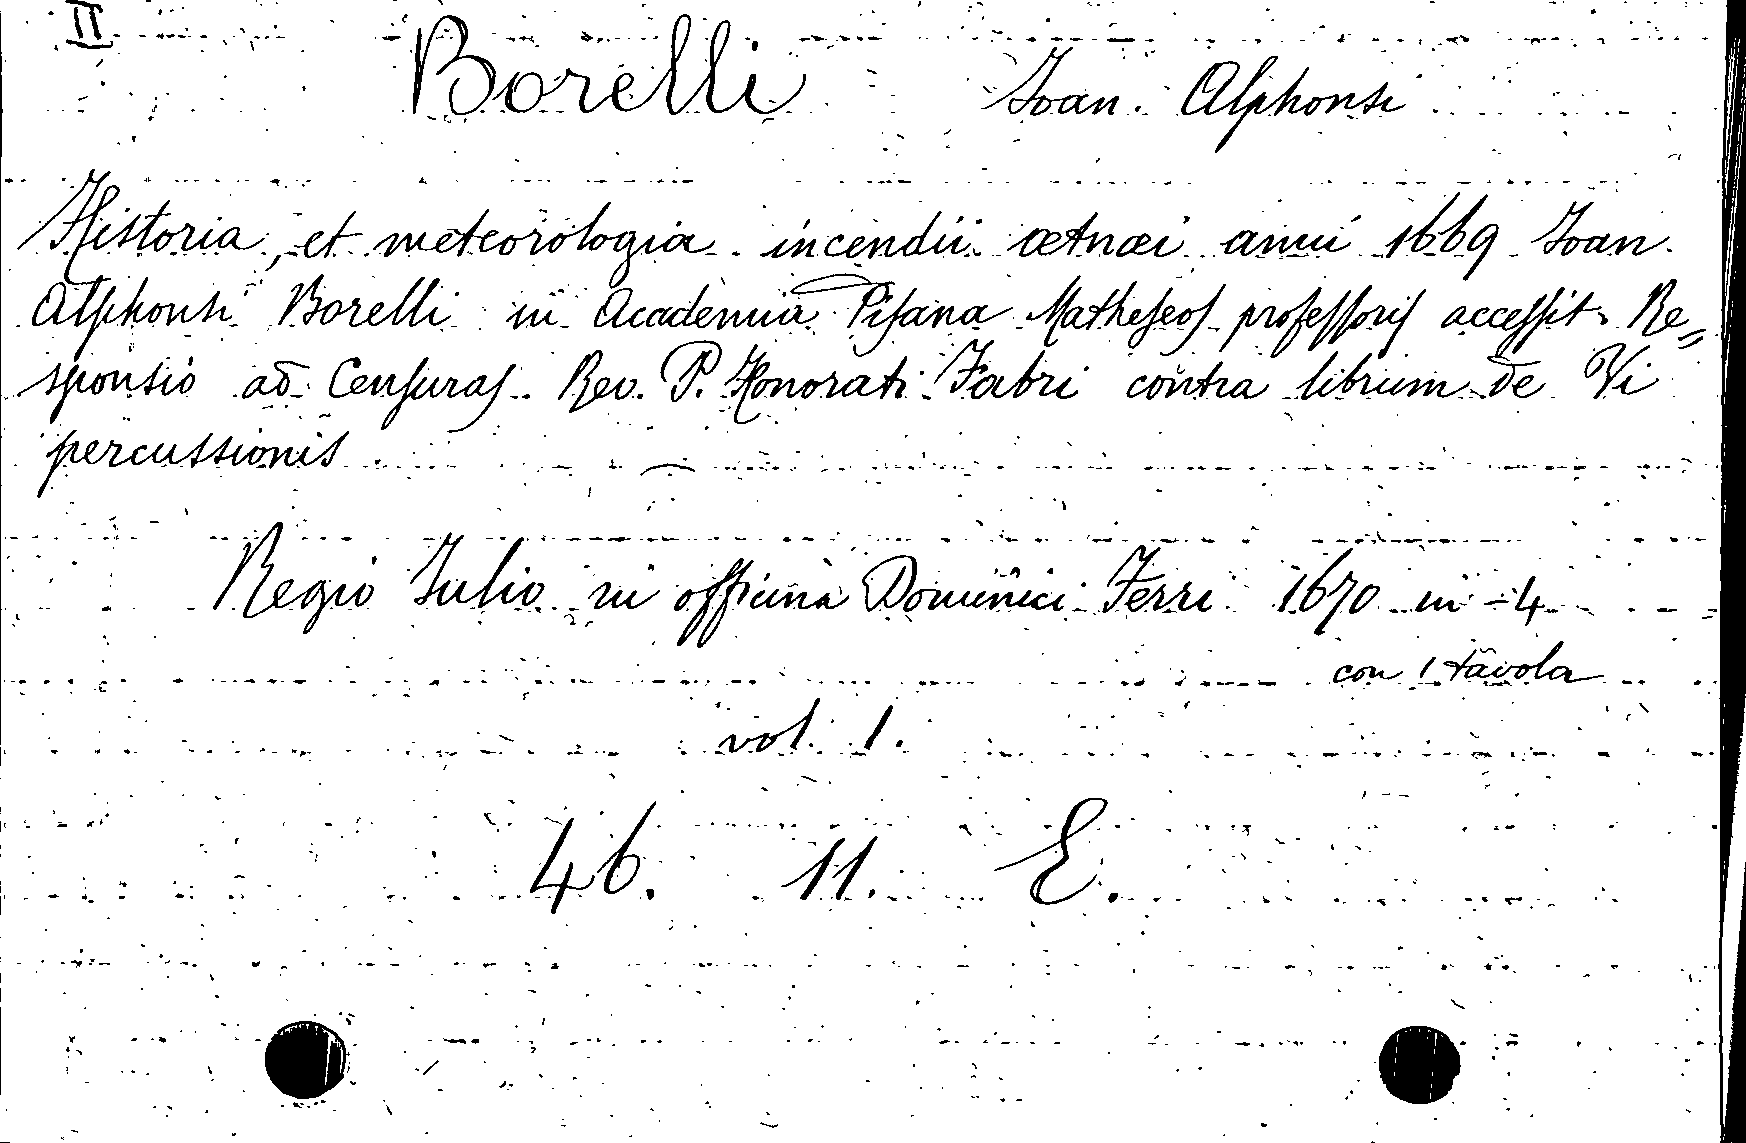 II
Borelli Ioan. Alphonsi
Historia, et meteorologia incendii ætnæi anni 1669 Ioan.
Alphonsi Borelli in Academia Piſana Matheſeoſ profeſſoriſ acceſſit Re„
sponsio ad Cenſuraſ Rev. P. Honorati Fabri contra librum de Vi
percussionis
Regio Iulio in officina Dominici Ferri 1670 in-4
con 1 tavola
vol. 1.
46. 11. E.